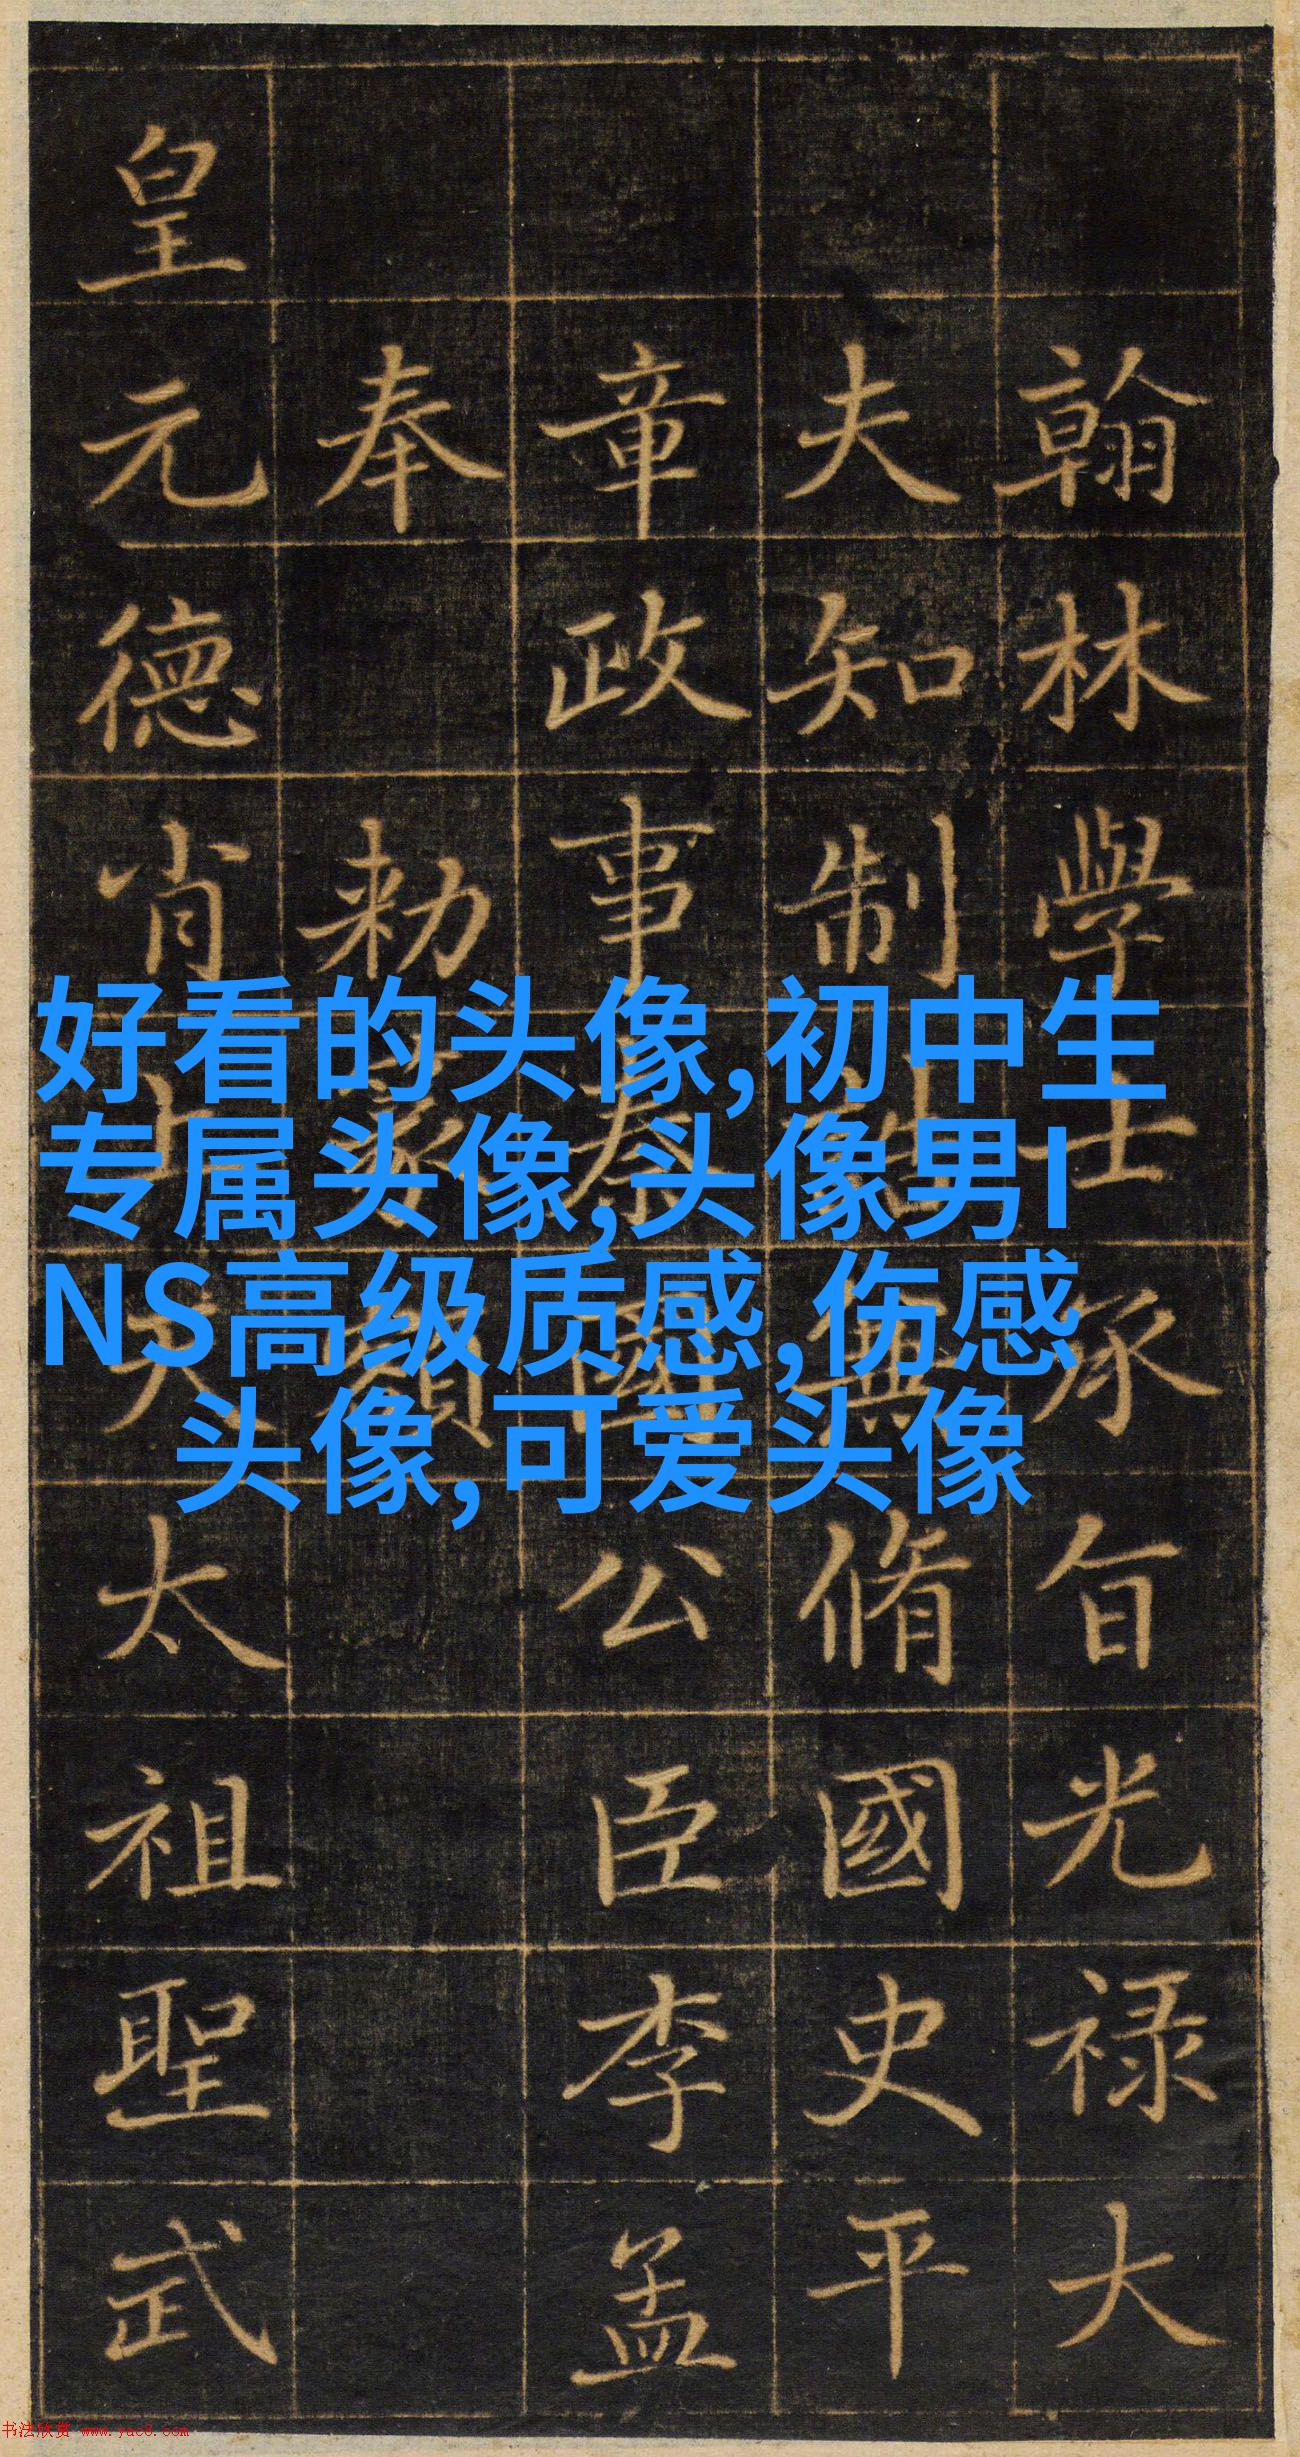 翰林學士承旨光禄大
夫知制脩國史平
章政事秦國公臣李孟
奉勑篆額
皇元德肖上天太祖聖武
好看的头像,初中生
专属头像,头像男I
NS高级质感,伤感
头像,可爱头像
书法欣赏 www.yac8.com